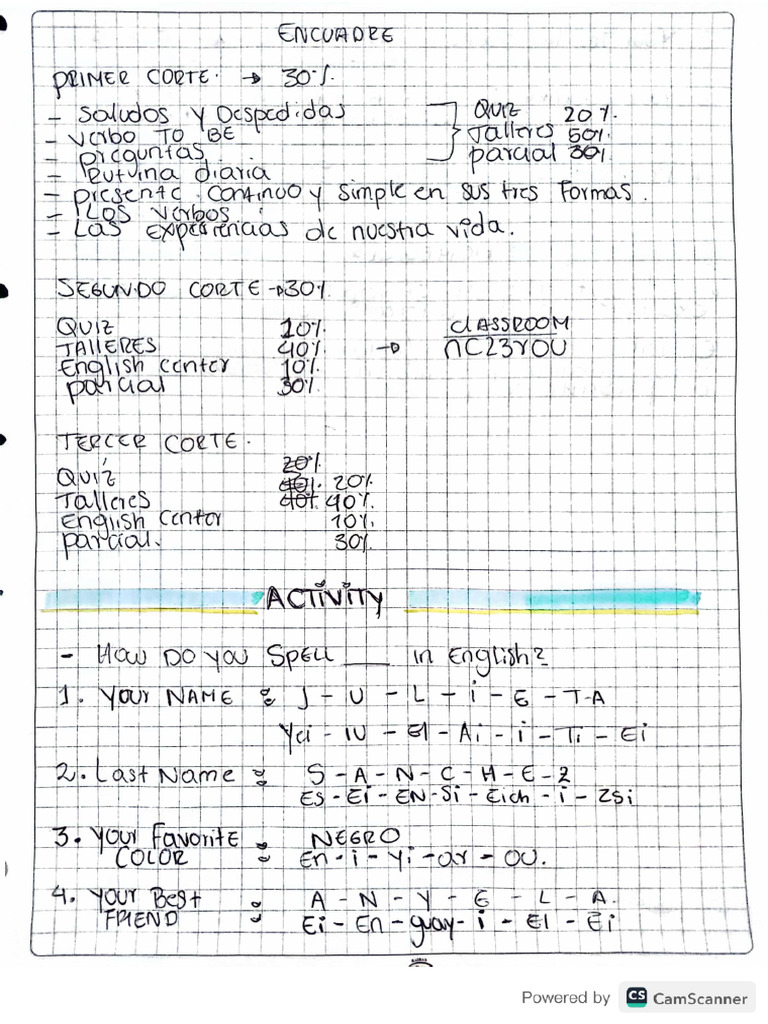 ENCUADRE
PRIMER CORTE. → 30%.
- Saludos y Despedidas
- verbo TO BE
- preguntas
- Rutuina diaria
- presente continuo y simple en sus tres Formas.
- LOS verbos
- Las experiencias de nuestra vida.
QUIZ 20%.
Talleres 50%.
parcial 30%
SEGUNDO CORTE → 30%
QUIZ 20%
TALLERES 40%
English center 10%
parcial 30%
→ CLASSROOM
nC23YOU
TERCER CORTE.
20%
QUIZ 20%
Talleres 40%
English center 10%
parcial. 30%
ACTIVITY
- HOW DO YOU SPELL ___ in English?
1. YOUR NAME : J - U - L - i - E - T - A
Yei - IU - El - Ai - i - Ti - Ei
2. Last Name : S - A - N - C - H - E - Z
ES - Ei - EN - Si - Eich - i - ZSi
3. YOUR Favorite COLOR : NEGRO
En - i - yi - ar - OU.
4. YOUR Best FRIEND : A - N - Y - E - L - A.
Ei - En - guay - i - El - Ei
Powered by CS CamScanner